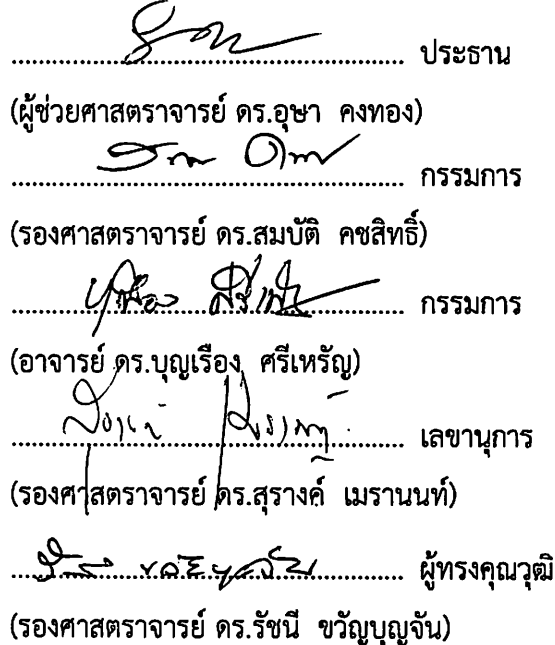 ประธาน
(ผู้ช่วยศาสตราจารย์ ดร.อุษา คงทอง)
กรรมการ
(รองศาสตราจารย์ ดร.สมบัติ คชสิทธิ์)
กรรมการ
(อาจารย์ ดร.บุญเรือง ศรีเหรัญ)
เลขานุการ
(รองศาสตราจารย์ ดร.สุรางค์ เมรานนท์)
ผู้ทรงคุณวุฒิ
(รองศาสตราจารย์ ดร.รัชนี ขวัญบุญจัน)